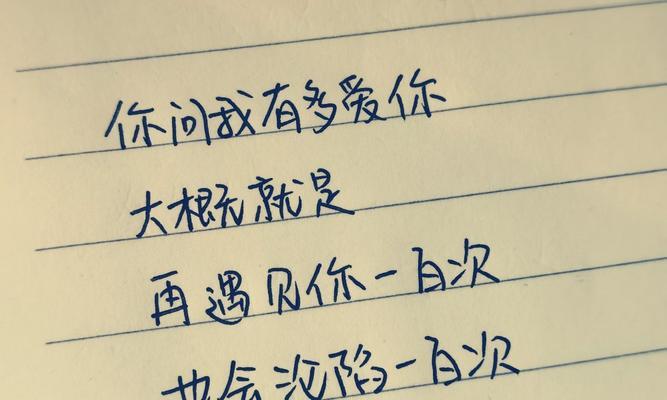 你问我有多爱你
大概就是
再遇见你一百次
也会沦陷一百次